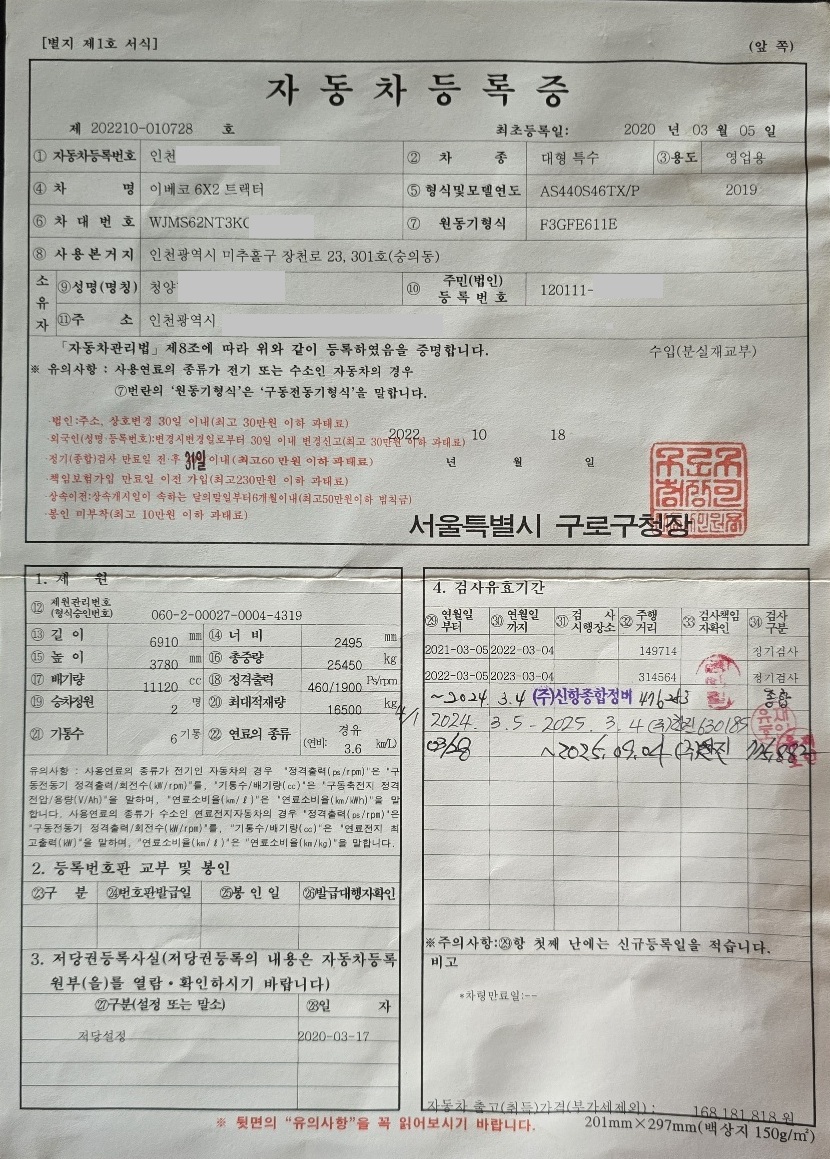 [별지 제1호 서식]
(앞 쪽)
자 동 차 등 록 증
제 202210-010728 호
최초등록일: 2020 년 03 월 05 일
① 자동차등록번호 인천 ② 차 종 대형 특수 ③용도 영업용
④ 차 명 이베코 6X2 트랙터 ⑤ 형식및모델연도 AS440S46TX/P 2019
⑥ 차 대 번 호 WJMS62NT3K ⑦ 원동기형식 F3GFE611E
⑧ 사 용 본 거 지 인천광역시 미추홀구 장천로 23, 301호(숭의동)
소유자
⑨성명(명칭) 청양 ⑩ 주민(법인)등 록 번 호 120111-
⑪주 소 인천광역시
「자동차관리법」 제8조에 따라 위와 같이 등록하였음을 증명합니다.
수입(분실재교부)
※ 유의사항 : 사용연료의 종류가 전기 또는 수소인 자동차의 경우
⑦번란의 '원동기형식'은 '구동전동기형식'을 말합니다.
·법인:주소, 상호변경 30일 이내(최고 30만원 이하 과태료)
·외국인(성명·등록번호):변경시변경일로부터 30일 이내 변경신고(최고 30만원 이하 과태료)
2022 10 18
·정기(종합)검사 만료일 전·후 31일이내(최고60만원 이하 과태료)
년 월 일
·책임보험가입 만료일 이전 가입(최고230만원 이하 과태료)
·상속이전:상속개시일이 속하는 달의말일부터6개월이내(최고50만원이하 범칙금)
·봉인 미부착(최고 10만원 이하 과태료)
서울특별시 구로구청장
1. 제 원
⑫ 제원관리번호(형식승인번호) 060-2-00027-0004-4319
⑬ 길 이 6910 mm ⑭ 너 비 2495 mm
⑮ 높 이 3780 mm ⑯ 총중량 25450 kg
⑰ 배기량 11120 cc ⑱ 정격출력 460/1900 Ps/rpm
⑲ 승차정원 2 명 ⑳ 최대적재량 16500 kg
㉑ 기통수 6 기통 ㉒ 연료의 종류 경유 (연비: 3.6 km/L)
유의사항 : 사용연료의 종류가 전기인 자동차의 경우 "정격출력(ps/rpm)"은 "구
동전동기 정격출력/회전수(kW/rpm)"를, "기통수/배기량(cc)"은 "구동축전지 정격
전압/용량(V/Ah)"을 말하며, "연료소비율(km/ℓ)"은 "연료소비율(km/kWh)"을 말
합니다. 사용연료의 종류가 수소인 연료전지자동차의 경우 "정격출력(ps/rpm)"은
"구동전동기 정격출력/회전수(kW/rpm)"를, "기통수/배기량(cc)"은 "연료전지 최
고출력(kW)"을 말하며, "연료소비율(km/ℓ)"은 "연료소비율(km/kg)"을 말합니다.
2. 등록번호판 교부 및 봉인
㉓구 분 ㉔번호판발급일 ㉕봉 인 일 ㉖발급대행자확인
3. 저당권등록사실(저당권등록의 내용은 자동차등록
원부(을)를 열람·확인하시기 바랍니다)
㉗구분(설정 또는 말소) ㉘일 자
저당설정 2020-03-17
4. 검사유효기간
㉙ 연월일부터 ㉚ 연월일까지 ㉛ 검 사시행장소 ㉜ 주행거리 ㉝ 검사책임자확인 ㉞ 검사구분
2021-03-05 2022-03-04 149714 정기검사
2022-03-05 2023-03-04 314564 정기검사
~2024. 3.4 (주)신항종합정비 종합
2024. 3.5 - 2025. 3.4 630185
~2025.09.04
※주의사항:㉙항 첫째 난에는 신규등록일을 적습니다.
비고
*차령만료일:--
자동차 출고(취득)가격(부가세제외) : 168,181,818 원
※ 뒷면의 "유의사항"을 꼭 읽어보시기 바랍니다.
201mm×297mm(백상지 150g/㎡)